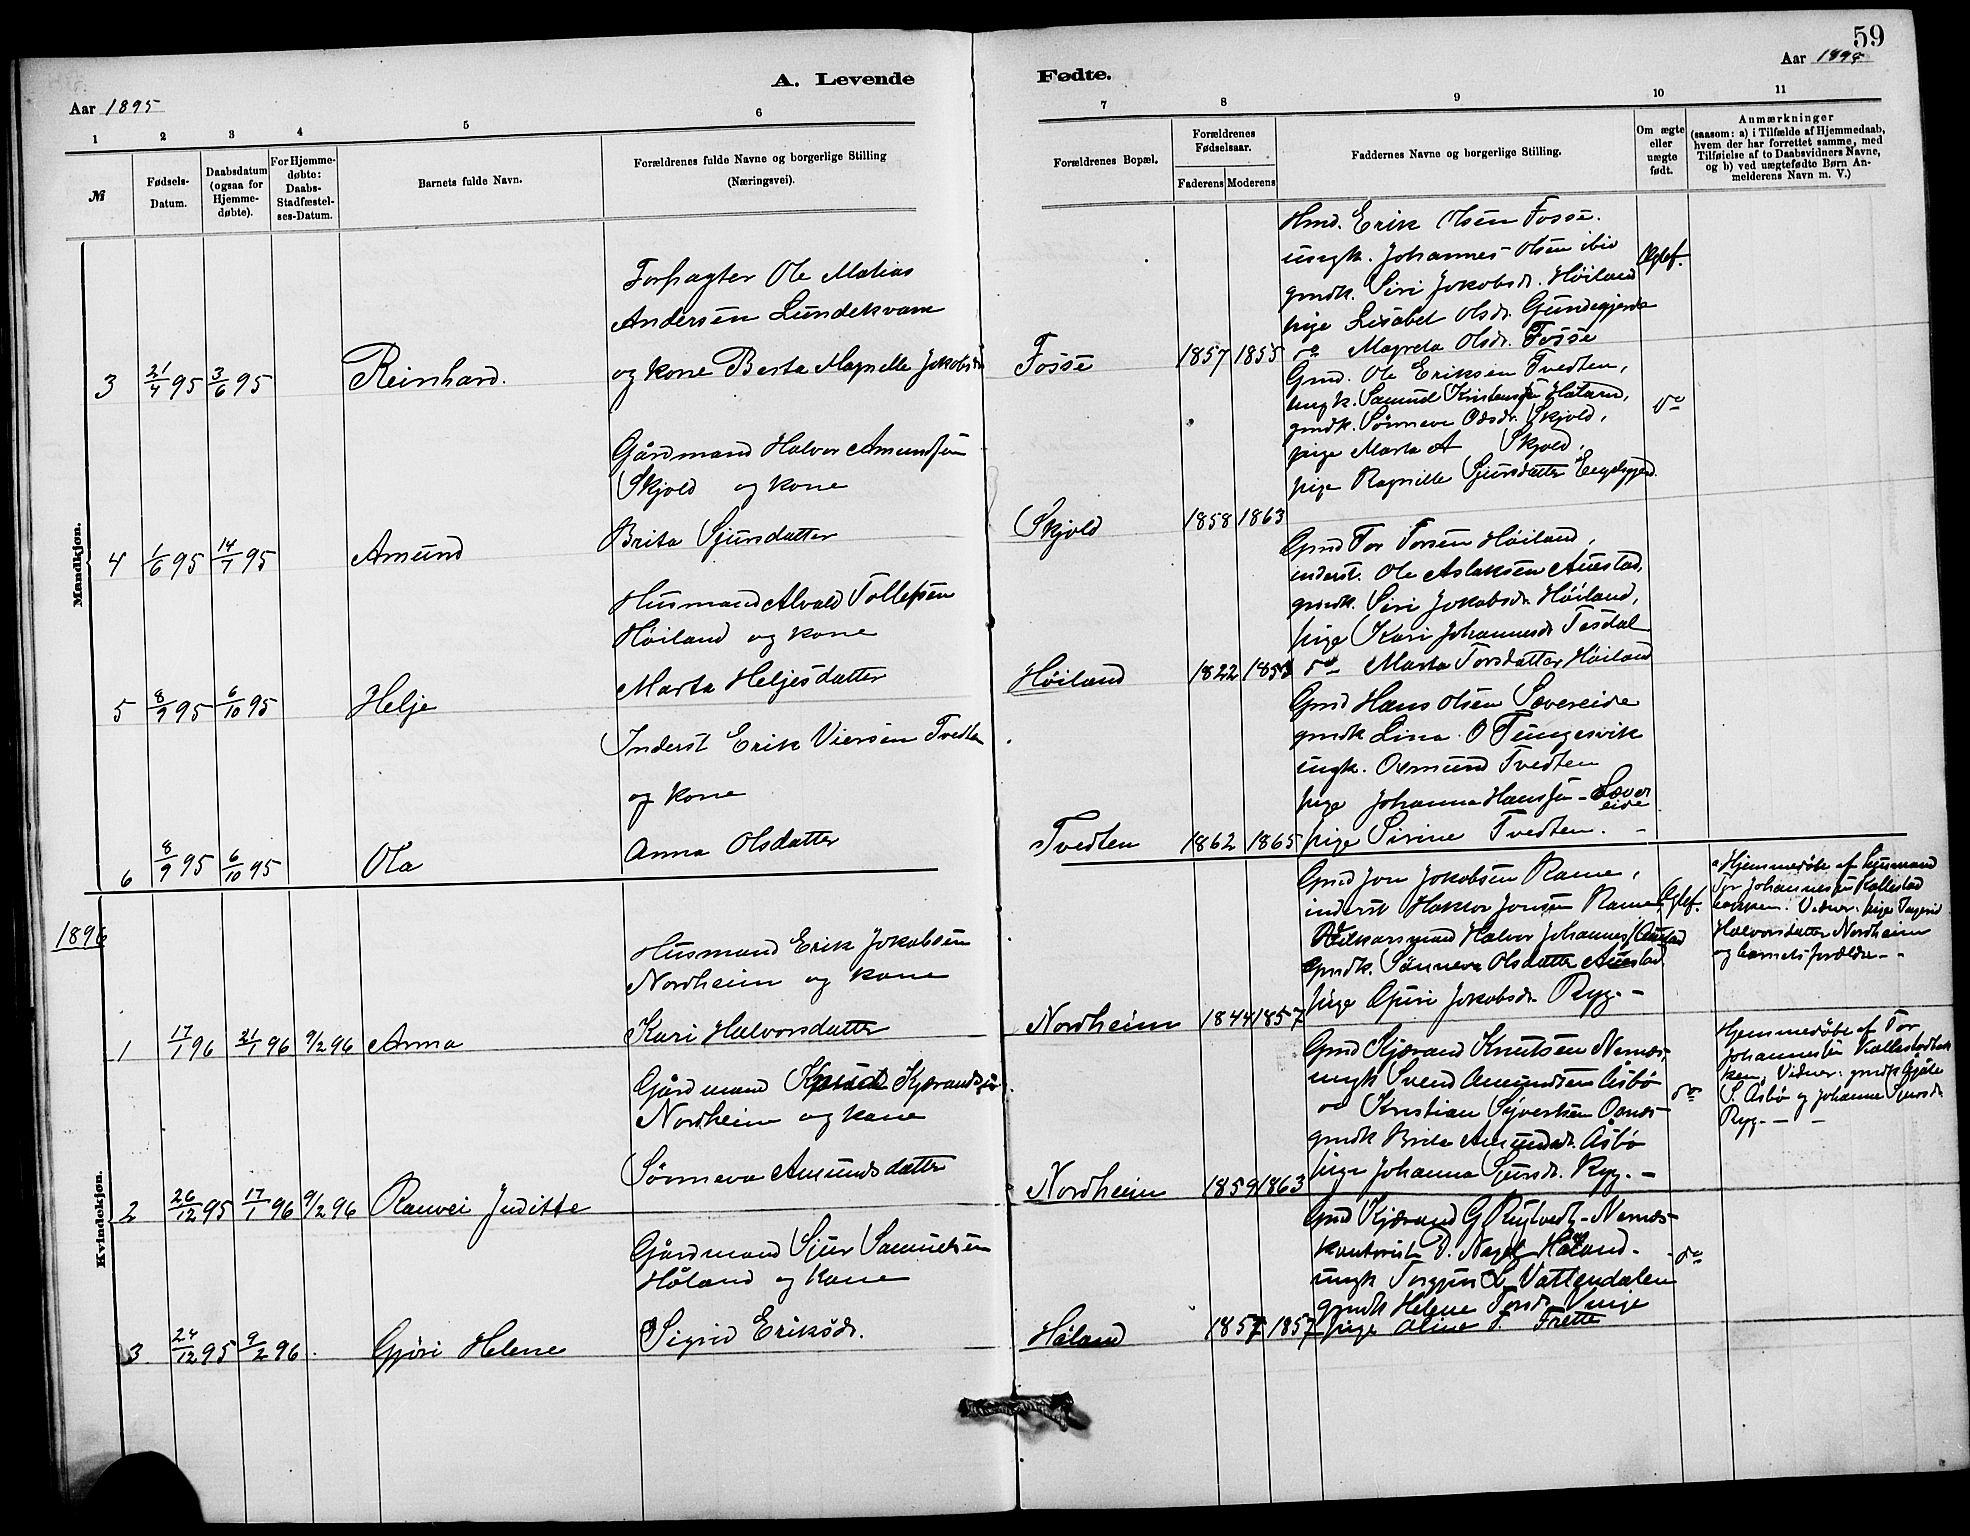 59
A. Levende Fødte.
Aar 1895
Aar 1895
1 2 3 4 5 6 7 8 9 10 11
№
Fødsels-
Datum.
Daabsdatum
(ogsaa for
Hjemme-
døbte).
For Hjemme-
døbte:
Daabs-
Stadfæstel-
ses-Datum.
Barnets fulde Navn.
Forældrenes fulde Navne og borgerlige Stilling
(Næringsvei).
Forældrenes Bopæl.
Forældrenes
Fødselsaar.
Faderens Moderens
Faddernes Navne og borgerlige Stilling.
Om ægte
eller
uægte
født.
Anmærkninger
(saasom: a) i Tilfælde af Hjemmedaab,
hvem der har forrettet samme, med
Tilføielse af to Daabsvidners Navne,
og b) ved uægtefødte Børn An-
melderens Navn m. V.)
Mandkjøn.
3 21/4 95 3/6 95 Reinhard.
Forpagter Ole Matias
Andersen Lundekvam
og kone Berta Magnille Jakobsd
Fosse 1857 1855
Hmd. Erik Olsen Fosse.
ungk. Johannes Olsen ibid
gmdk. Siri Jokobsdr. Høiland
pige Lisabet Olsdr. Gundegjerde
do Magreta Olsdr. Fosse
Ægtef.
4 1/6 95 14/7 95 Amund
Gårdmand Halvor Amundsen
Skjold og kone
Brita Sjursdatter
Skjold 1858 1863
Gmd. Ole Eriksen Tvedten,
ungk. Samuel Kristensen Håland,
gmdk. Sønneva Olsdr. Skjold,
pige Marta A Skjold,
pige Ragnille Sjursdatter
do
5 8/9 95 6/10 95 Helje
Husmand Alvald Tollefsen
Høiland og kone
Marta Heljesdatter
Høiland 1822 1853
Gmd Tor Torsen Høiland,
inderst. Ole Aslaksen Auestad,
gmdk. Siri Jokobsdr Høiland,
pige Kari Johannesdr Tesdal
do Marta Torsdatter Høiland
6 8/9 95 6/10 95 Ola
Inderst Erik Viersen Tvedten
og kone
Anna Olsdatter
Tvedten 1862 1865
Gmd Hans Olsen Sævereide
gmdk Lina O Tungesvik
ungk. Osmund Tvedten
pige Johanna Hansen - Sæver
eide
pige Sirine Tvedten. -
1896
Kvindekjøn.
1 17/1 96 21/1 96 9/2 96 Anna
Husmand Erik Jokobsen
Nordheim og kone
Kari Halvorsdatter
Nordheim 1844 1857
Gmd Jon Jokobsen Rame,
inderst Haktor Jonsen Rame,
Vilkårsmand Halvor Johannes. Auestad
Gmdk. Sønneva Olsdatter Auestad.
Pige Guri Jokobsdr. Ryg. -
Ægtef.
a Hjemmedøbt af husmand
Tor Johannesen Kallestad
bakken. Vidner: pige Ingerid
Halvorsdatter Nordheim
og barnets forældre - -
2 26/12 95 17/1 96 9/2 96 Ranvei Juditte
Gårdmand Knud Kjærandsen
Nordheim og kone
Sønneva Amundsdatter
Nordheim 1859 1863
Gmd Kjærand Knutsen Nernæs,
ungk Svend Amundsen Åsbø
do Kristian Syvertsen Opnæs
gmdk Brita Amundsdr. Åsbø
pige Johanna Sjursdr. Ryg. -
do
Hjemmedøbt af Tor
Johannesen Kallestadbak
ken. Vidner: gmdk Gjøle
S. Åsbø og Johanne Sjursdr
Ryg - -
3 24/12 95 9/2 96 Gjøri Helene
Gårdmand Sjur Samuelsen
Håland og kone
Sigrid Eriksdr.
Håland 1857 1857
Gmd Kjærand G Nernæs-
Kantorist D. Nagel Håland -
ungk Torgjus L Vattendalen
gmdk Helene Torsdr Vinje
pige Oline T. Trette
do